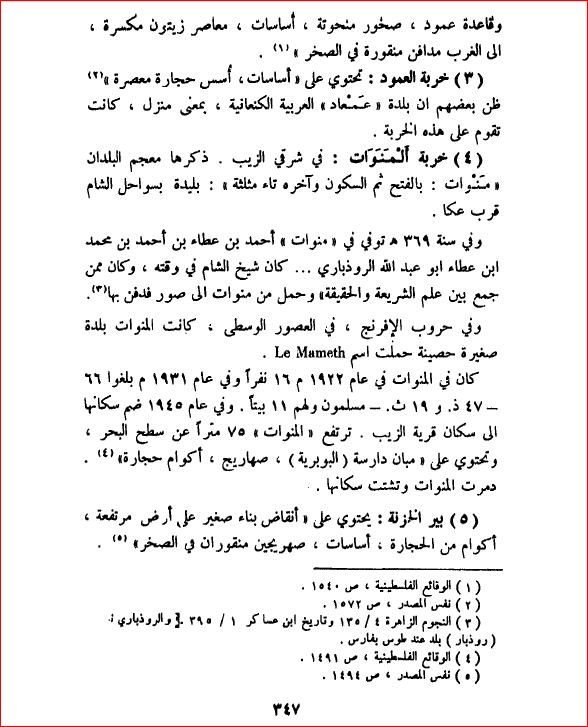 وقاعدة عمود ، صخور منحوتة ، أساسات ، معاصر زيتون مكسرة ،
الى الغرب مدافن منقورة في الصخر » (١) .
(٣) خربة العمود : تحتوي على « أساسات، أسس حجارة معصرة »(٢)
ظن بعضهم ان بلدة « عَمْعاد» العربية الكنعانية ، بمعنى منزل ، كانت
تقوم على هذه الخربة .
(٤) خربة ألْمَنَوَات : في شرقي الزيب . ذكرها معجم البلدان
« مَنْوات : بالفتح ثم السكون وآخره تاء مثلثة » : بليدة بسواحل الشام
قرب عكا .
وفي سنة ٣٦٩ ه‍ توفي في « منوات » أحمد بن عطاء بن أحمد بن محمد
ابن عطاء ابو عبد الله الروذباري ... كان شيخ الشام في وقته ، وكان ممن
جمع بين علم الشريعة والحقيقة» وحمل من منوات الى صور فدفن بها(٣).
وفي حروب الإفرنج ، في العصور الوسطى ، كانت المنوات بلدة
صغيرة حصينة حملت اسم Le Mameth .
كان في المنوات في عام ١٩٢٢ م ١٦ نفراً وفي عام ١٩٣١ م بلغوا ٦٦
– ٤٧ ذ. و ١٩ ث. – مسلمون ولهم ١١ بيتاً . وفي عام ١٩٤٥ ضم سكانها
الى سكان قرية الزيب . ترتفع « المنوات » ٧٥ متراً عن سطح البحر ،
وتحتوي على « مبان دارسة ( البوبرية ) ، صهاريج ، أكوام حجارة» (٤) .
دمرت المنوات وتشتت سكانها .
(٥) بير الخزنة : يحتوي على « أنقاض بناء صغير على أرض مرتفعة ،
أكوام من الحجارة ، أساسات ، صهريجين منقوران في الصخر» (٥) .
(١) الوقائع الفلسطينية ، ص ١٥٤٠ .
(٢) نفس المصدر ، ص ١٥٧٢ .
(٣) النجوم الزاهرة ٤ / ١٣٥ وتاريخ ابن عساكر ١ / ٣٩٥ . والروذباري
( روذبار ) بلد عند طوس بفارس .
(٤) الوقائع الفلسطينية ، ص ١٤٩١ .
(٥) نفس المصدر ، ص ١٤٩٤ .
٣٤٧